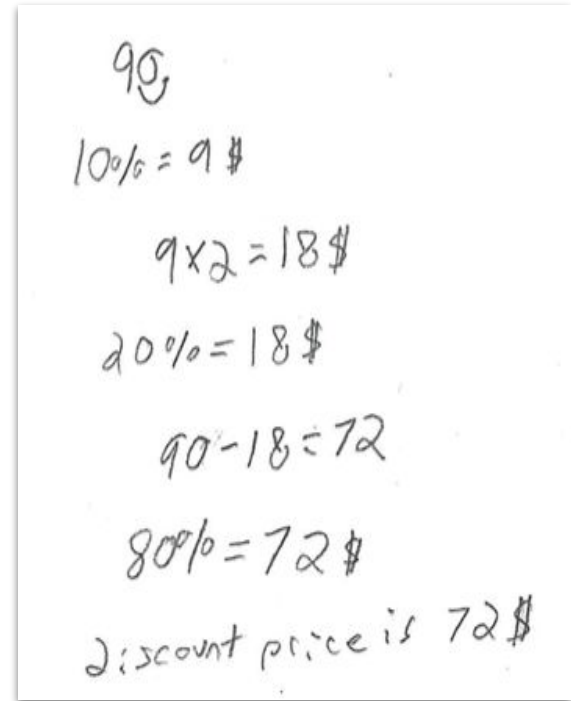 90
10% = 9$
9x2 = 18$
20% = 18$
90-18 = 72
80% = 72$
discount price is 72$